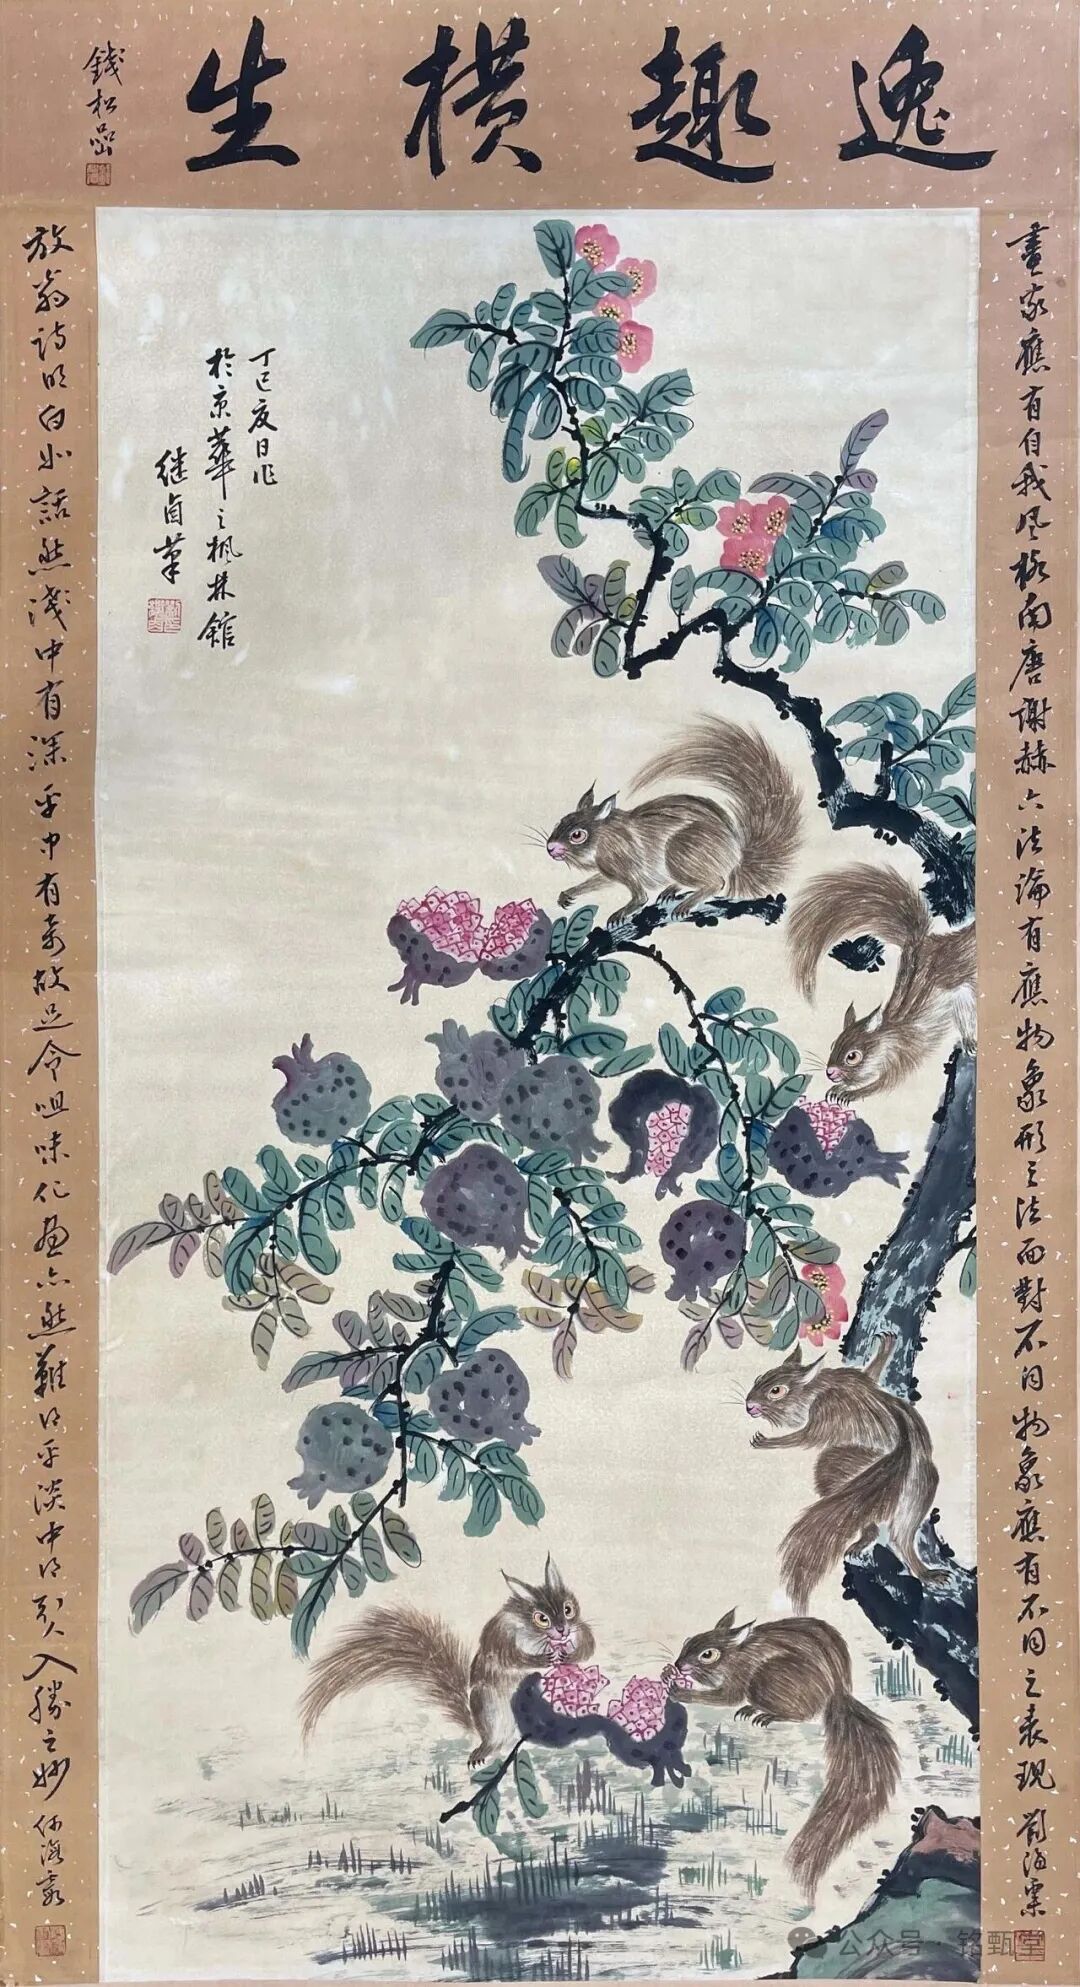 逸趣横生
錢松喦
畫家應有自我风格南唐谢赫六法論有應物象形之法面對不同物象應有不同之表現
劉海粟
丁巳夏日作
於京華之楓林館
继卣筆
放翁诗明白如話然淺中有深平中有奇故足令咀味作画亦然難得平淡中得引人入勝之妙
何海霞
公众号·铭甄堂